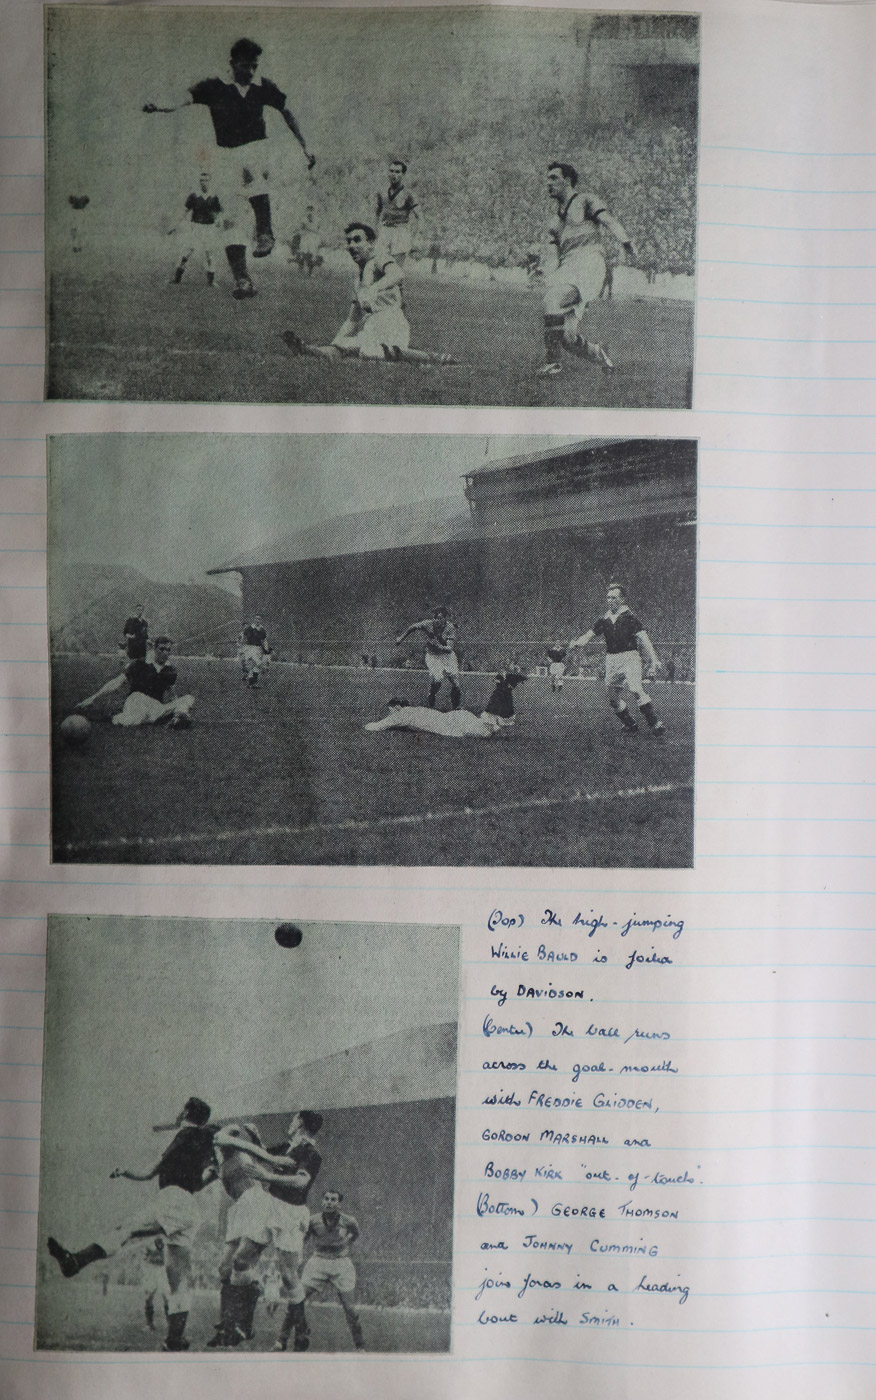 (Top) The high-jumping
WILLIE BAULD is foiled
by DAVIDSON.
(Centre) The ball runs
across the goal-mouth
with FREDDIE GLIDDEN,
GORDON MARSHALL and
BOBBY KIRK "out-of-touch".
(Bottom) GEORGE THOMSON
and JOHNNY CUMMING
join forces in a heading
bout with SMITH.